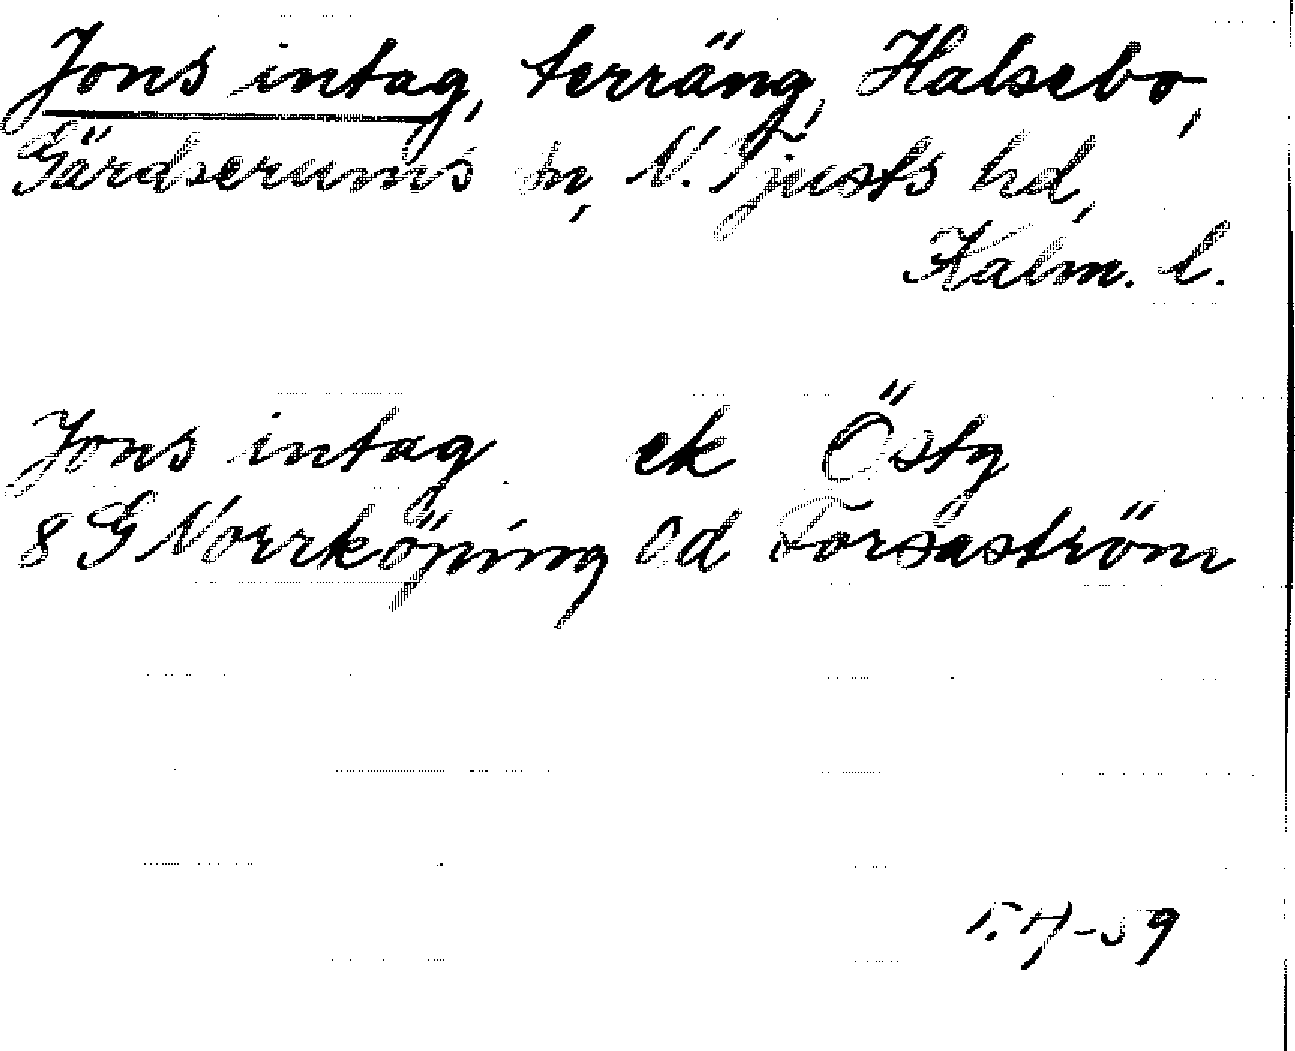 Jons intag, terräng, Halsebo,
Gärdserums sn, N. Tjusts hd,
Kalm. l.
Jons intag ek Östg
8 G Norrköping Od Forsaström